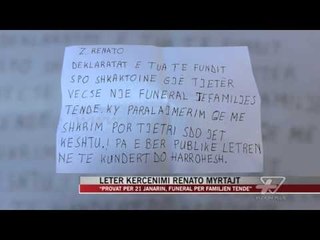 Z. RENATO
DEKLARATAT E TUA TE FUNDIT
SPO SHKAKTOJNE GJE TJETER
VECSE NJE FUNERAL TEFAMILJES
TENDE. KY PARALAJMERIM QE ME
SHKRIM POR TJETRI SDO JET
KESHTU, I PA E BER PUBLIKE LETREN
NE TE KUNDERT DO HARROHESH.
LETER KERCENIMI RENATO MYRTAJT
"PROVAT PER 21 JANARIN, FUNERAL PER FAMILJEN TENDE"